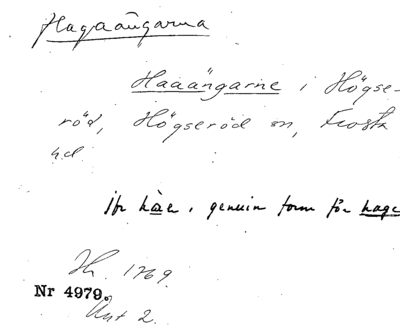 Hagaängarna
Haaängarne i Högse-
röd, Högseröd sn, Frosta
hd
jfr håe, genuin form för hage
Jh. 1769.
Nr 4979.
Ant 2.